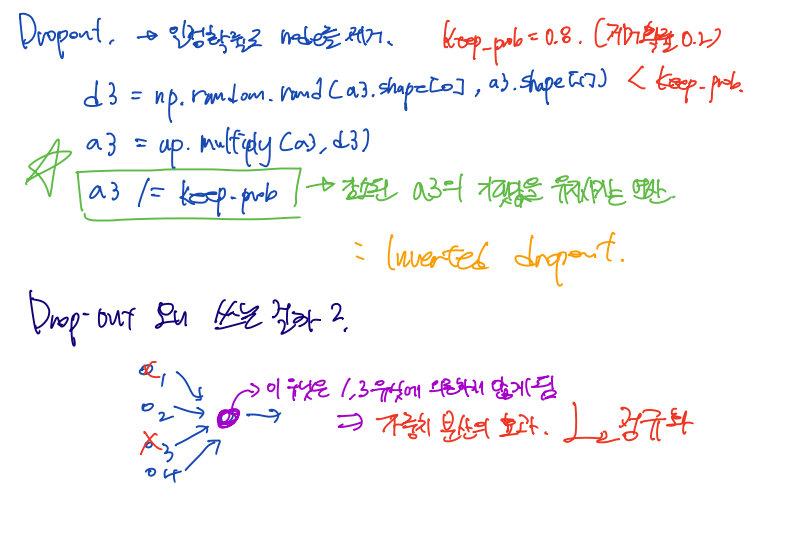 Dropout. → 일정확률로 node를 제거. keep_prob = 0.8. (제거확률 0.2)
d3 = np.random.rand(a3.shape[0], a3.shape[1]) < keep-prob.
a3 = np.multiply(a3, d3)
a3 /= keep-prob → 감소된 a3의 기댓값을 유지시키는 연산.
= Inverted dropout.
Drop-out 왜 쓰는 걸까?
1
2 → 이 유닛은 1,3 유닛에 의존하지 않게 됨
3 ⇒ 가중치 분산의 효과. L2 정규화
4